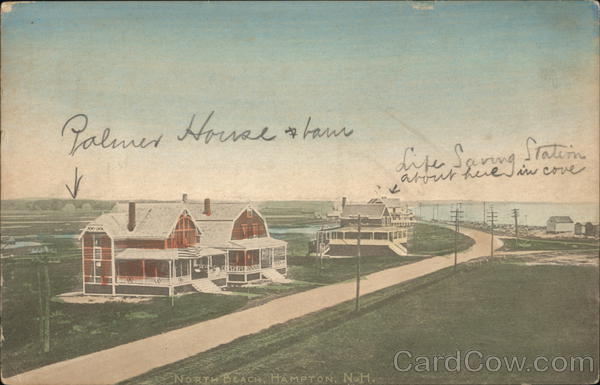 CardCow
Palmer House & barn
Life Saving Station
about here in cove
North Beach, Hampton, N.H.
CardCow.com